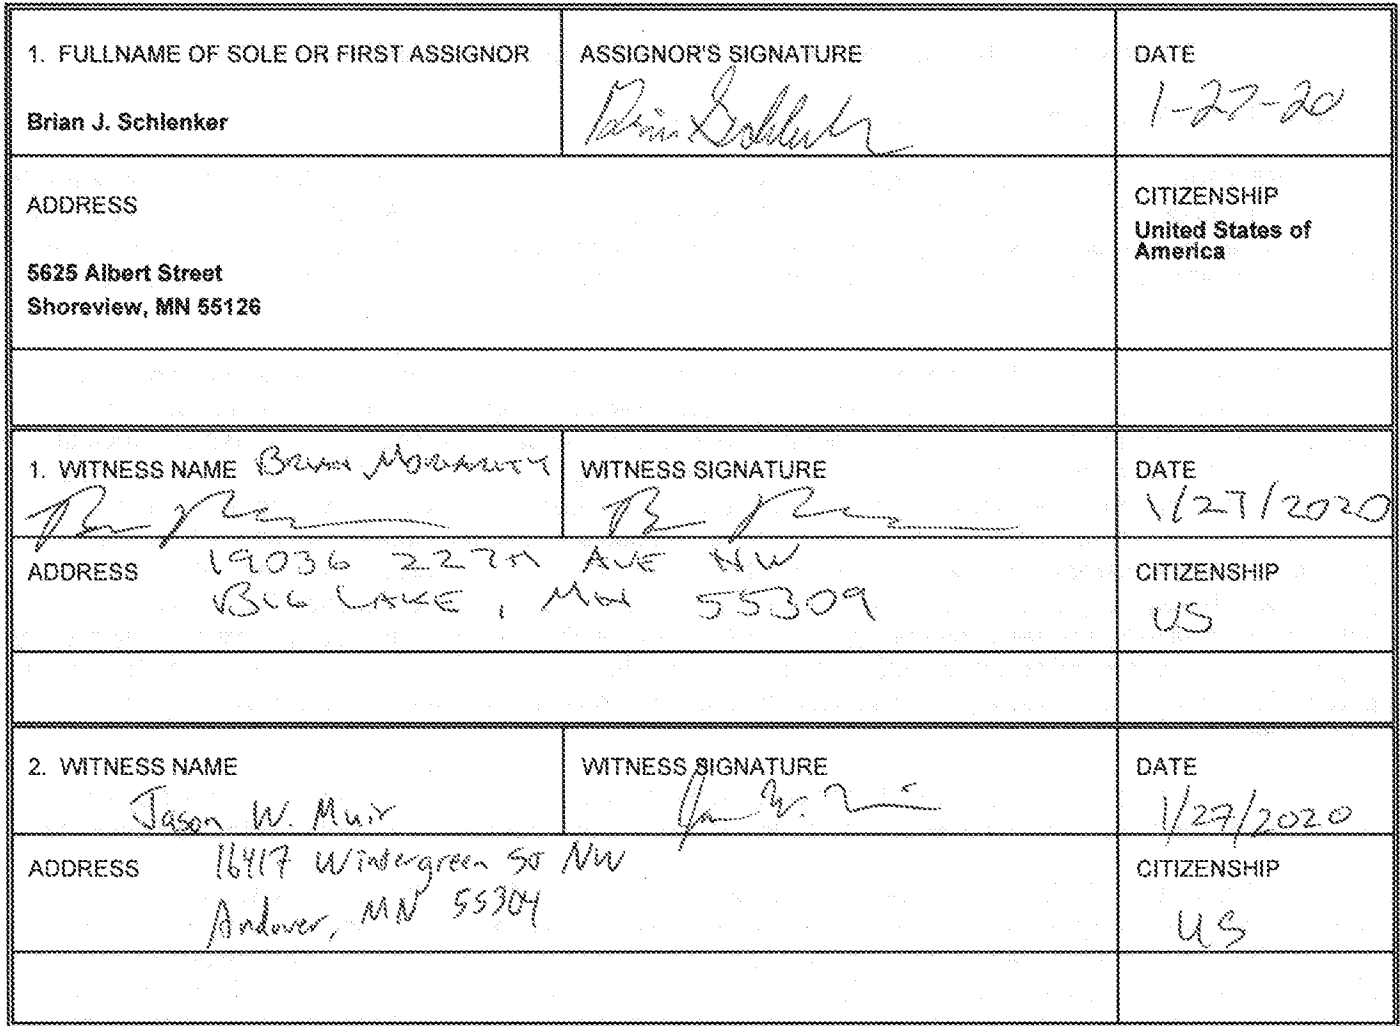 1. FULLNAME OF SOLE OR FIRST ASSIGNOR
Brian J. Schlenker
ASSIGNOR'S SIGNATURE
DATE
1-27-20
ADDRESS
5625 Albert Street
Shoreview, MN 55126
CITIZENSHIP
United States of
America
1. WITNESS NAME Brian Moriarity
WITNESS SIGNATURE
DATE
1/27/2020
ADDRESS
19036 227th AVE NW
BIG LAKE, MN 55309
CITIZENSHIP
US
2. WITNESS NAME
Jason W. Muir
WITNESS SIGNATURE
DATE
1/27/2020
ADDRESS
16417 Wintergreen St NW
Andover, MN 55304
CITIZENSHIP
US